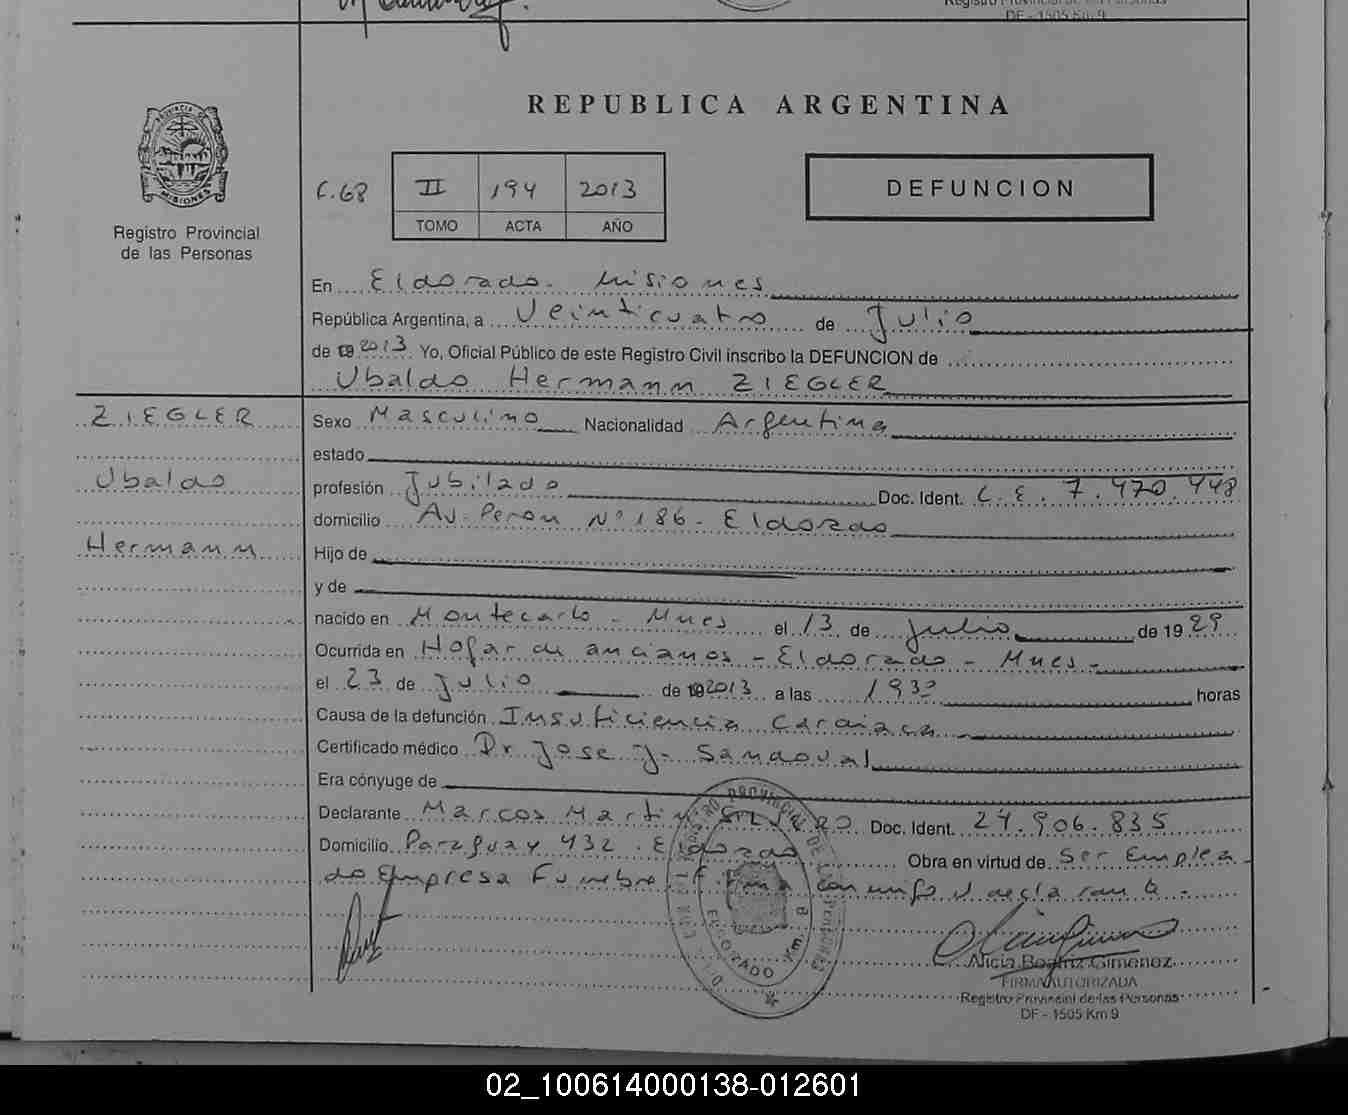 Registro Provincial de las Personas
DF - 1505 Km 9
REPUBLICA ARGENTINA
PROVINCIA DE
MISIONES
Registro Provincial
de las Personas
C.68
II 194 2013
TOMO ACTA AÑO
DEFUNCION
En Eldorado. Misiones
República Argentina, a Veinticuatro de Julio
de 19 2013. Yo, Oficial Público de este Registro Civil inscribo la DEFUNCION de
Ubaldo Hermann ZIEGLER
ZIEGLER
Ubaldo
Hermann
Sexo Masculino Nacionalidad Argentina
estado
profesión Jubilado Doc. Ident. L.E. 7.470.448
domicilio Av. Peron Nº 186 - Eldorado
Hijo de
y de
nacido en Montecarlo - Mnes el 13 de Julio de 19 29
Ocurrida en Hogar de ancianos - Eldorado - Mnes -
el 23 de Julio de 19 2013 a las 19 30 horas
Causa de la defunción Insuficiencia Cardiaca
Certificado médico Dr Jose J. Sandoval
Era cónyuge de
Declarante Marcos Martin Doc. Ident. 24.906.835
Domicilio Paraguay 432. Eldorado Obra en virtud de Ser Emplea
do Empresa Funebre Firma conmigo el declarante -
Alicia Beatriz Gimenez
FIRMA AUTORIZADA
Registro Provincial de las Personas
DF - 1505 Km 9
02_100614000138-012601